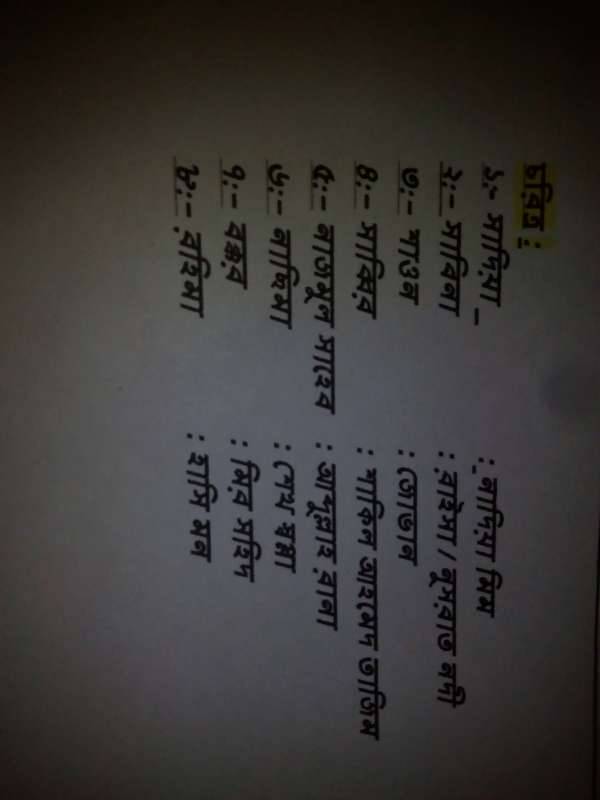 চরিত্র :
১:- সাদিয়া _ : নাদিয়া মিম
২:- সাবিনা : রাইসা / নুসরাত নদী
৩:- শাওন : তোভান
৪:- সাব্বির : শাকিল আহমেদ তাজিম
৫:- নাজমুল সাহেব : আব্দুল্লাহ রানা
৬:- নাছিমা : শেখ স্বপ্না
৭:- বক্কর : মির সহিদ
৮:- রহিমা : হাসি মন